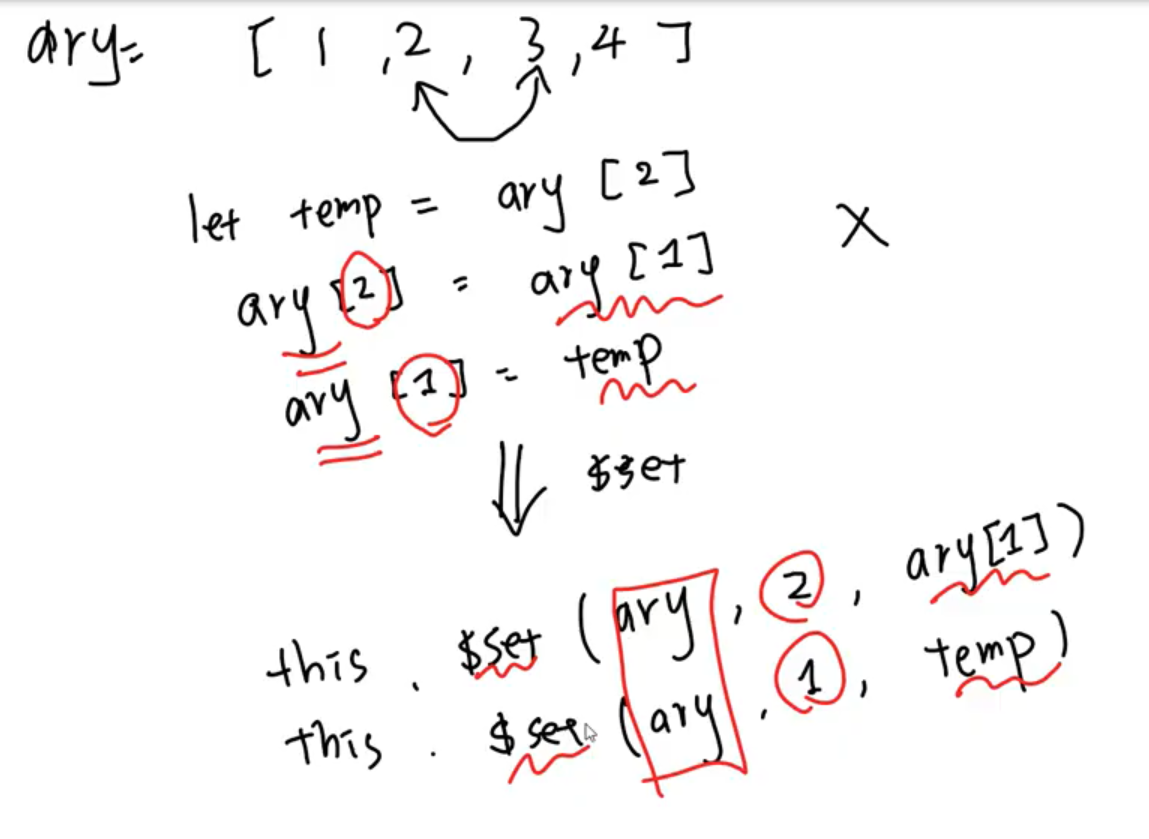 ary= [ 1 , 2 , 3 , 4 ]
let temp = ary [2]
X
ary [2] = ary [1]
ary [1] = temp
$set
this . $set (ary , 2 , ary[1])
this . $set (ary , 1 , temp)